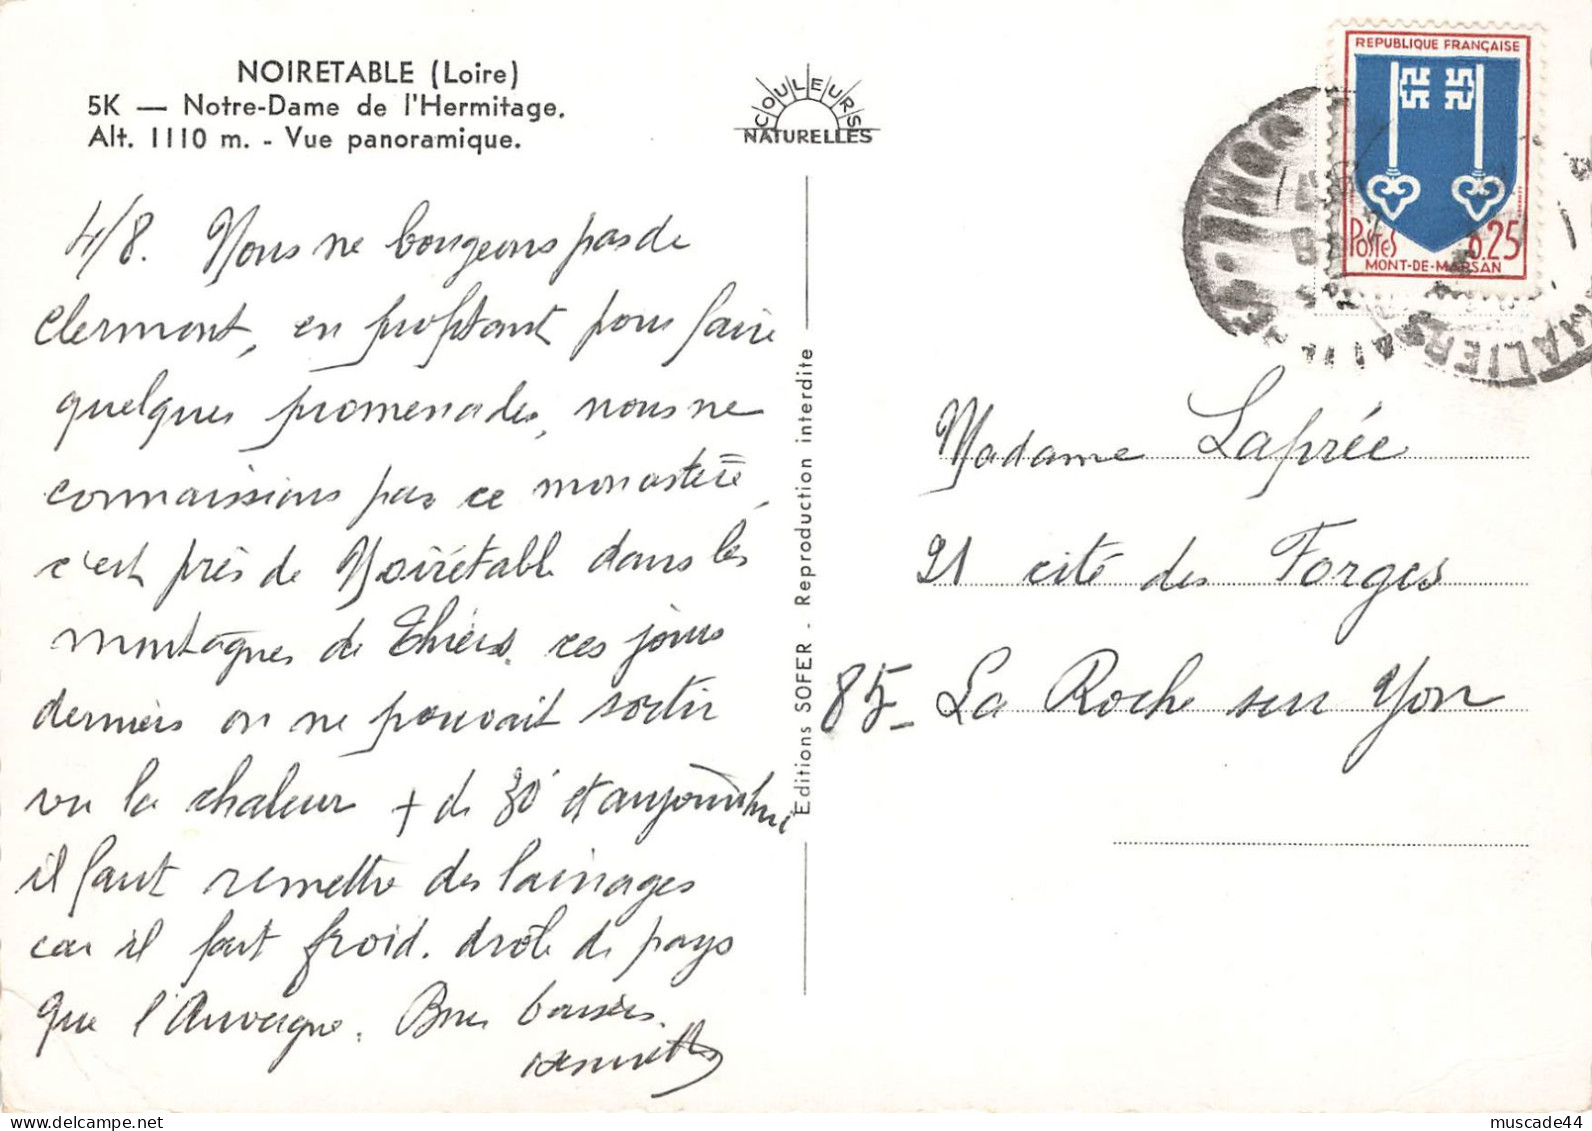 NOIRETABLE (Loire)
5K — Notre-Dame de l'Hermitage.
Alt. 1110 m. - Vue panoramique.
COULEURS
NATURELLES
REPUBLIQUE FRANÇAISE
POSTES 0.25
MONT-DE-MARSAN
4/8. Nous ne bougeons pas de
Clermont, en profitant pour faire
quelques promenades, nous ne
connaissions pas ce monastère,
c'est près de Noirétable dans les
montagnes de Thiers. ces jours
derniers on ne pouvait sortir
vu la chaleur + de 30° et aujourd'hui
il faut remettre des lainages
car il fait froid. drôle de pays
que l'Auvergne. Bons baisers.
Editions SOFER - Reproduction interdite
Madame Laprée
21 cité des Forges
85- La Roche sur Yon
muscade44